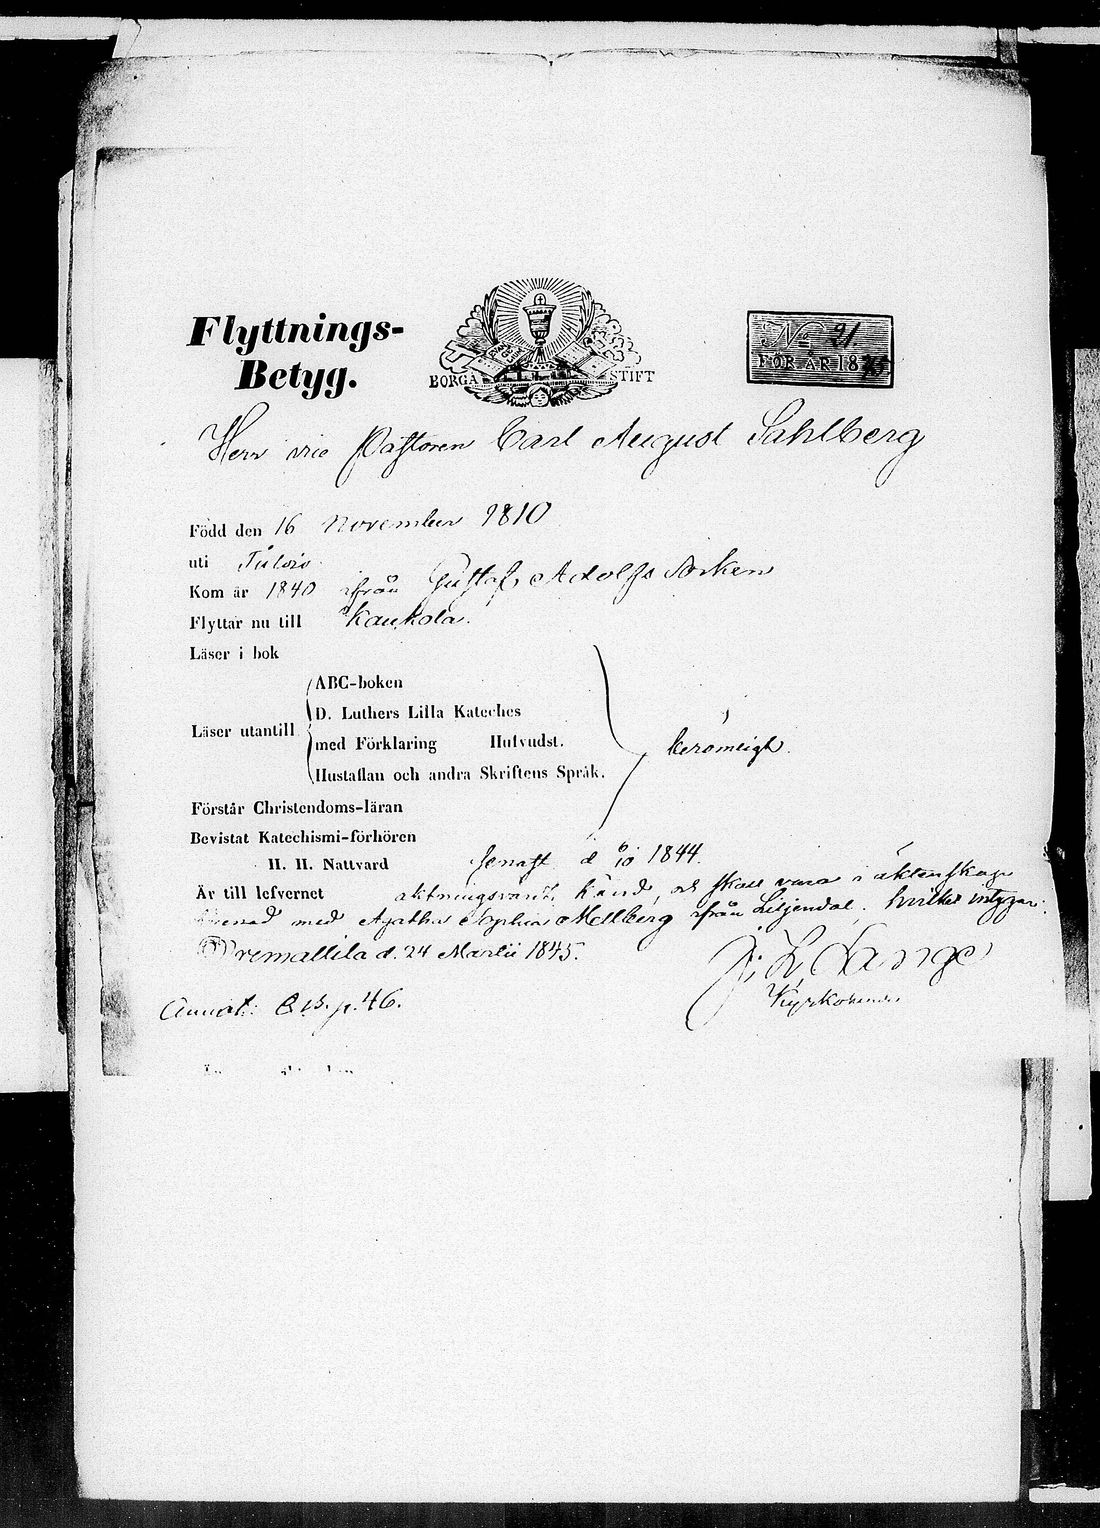 Flyttnings-
Betyg.
BORGÅ STIFT
No 21
FÖR ÅR 1845
Herr vice Pastoren Carl August Sahlberg
Född den 16 November 1810
uti
Kom år 1840 ifrån Gustaf Adolfs Socken
Flyttar nu till Kaukola.
Läser i bok
Läser utantill
ABC-boken
D. Luthers Lilla Kateches
med Förklaring Hufvudst.
Hustaflan och andra Skriftens Språk.
berömligt.
Förstår Christendoms-läran
Bevistat Katechismi-förhören
H. H. Nattvard senast d 6/10 1844.
Är till lefvernet aktningsvärdt känd, och skall vara i äktenskap
med Agatha Sophia Mellberg ifrån Liljendal, hvilket intygar:
d. 24 Martii 1845.
Lange
Kyrkoherde
Annot: p. 46.